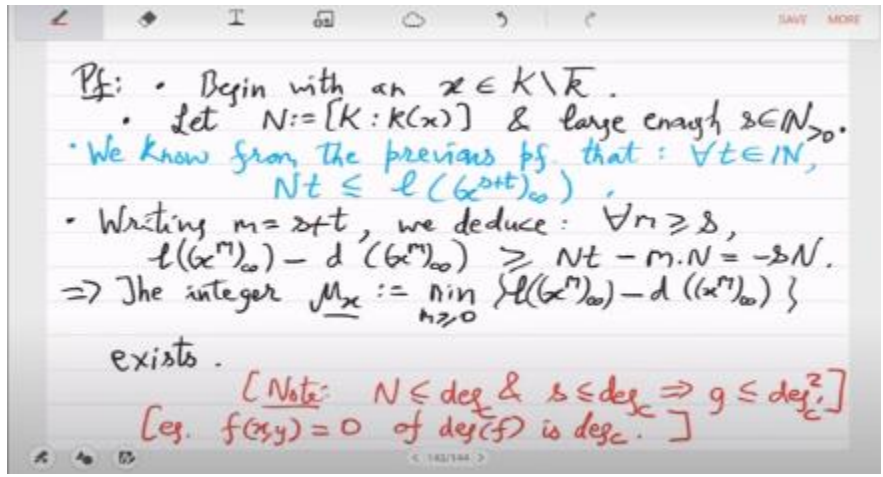 SAVE MORE
Pf: • Begin with an x ∈ K\k̄.
• Let N := [K : k(x)] & large enough s ∈ ℕ>0.
• We know from the previous pf. that : ∀t ∈ ℕ,
Nt ≤ l((x^{s+t})_∞).
• Writing m = s+t, we deduce : ∀m ≥ s,
l((x^m)_∞) − d((x^m)_∞) ≥ Nt − m.N = −sN.
=> The integer μ_x := min_{m≥0} {l((x^m)_∞) − d((x^m)_∞)}
exists.
[Note: N ≤ deg_C & s ≤ deg_C => g ≤ deg_C^2.]
[eg. f(x,y) = 0 of deg(f) is deg_C.]
< 143/144 >